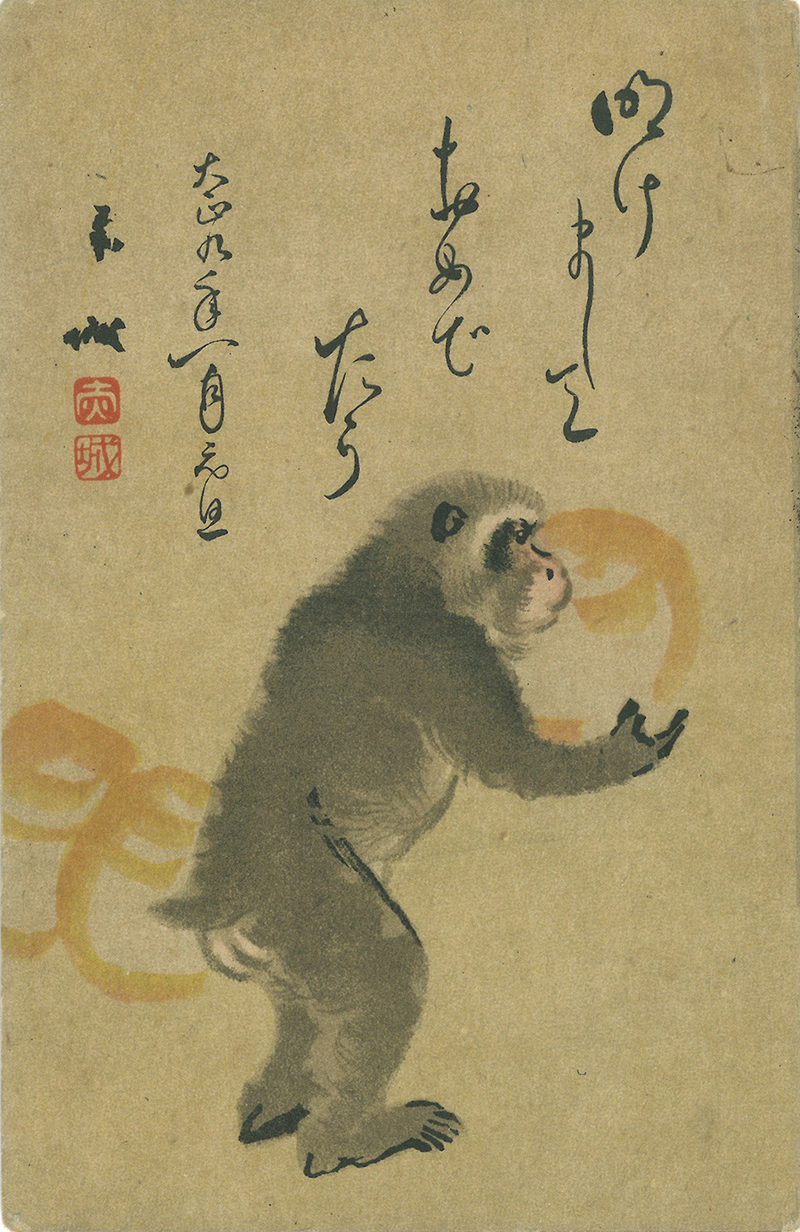 明け
まして
おめで
たう
大正九年一月元旦
赤城
赤城